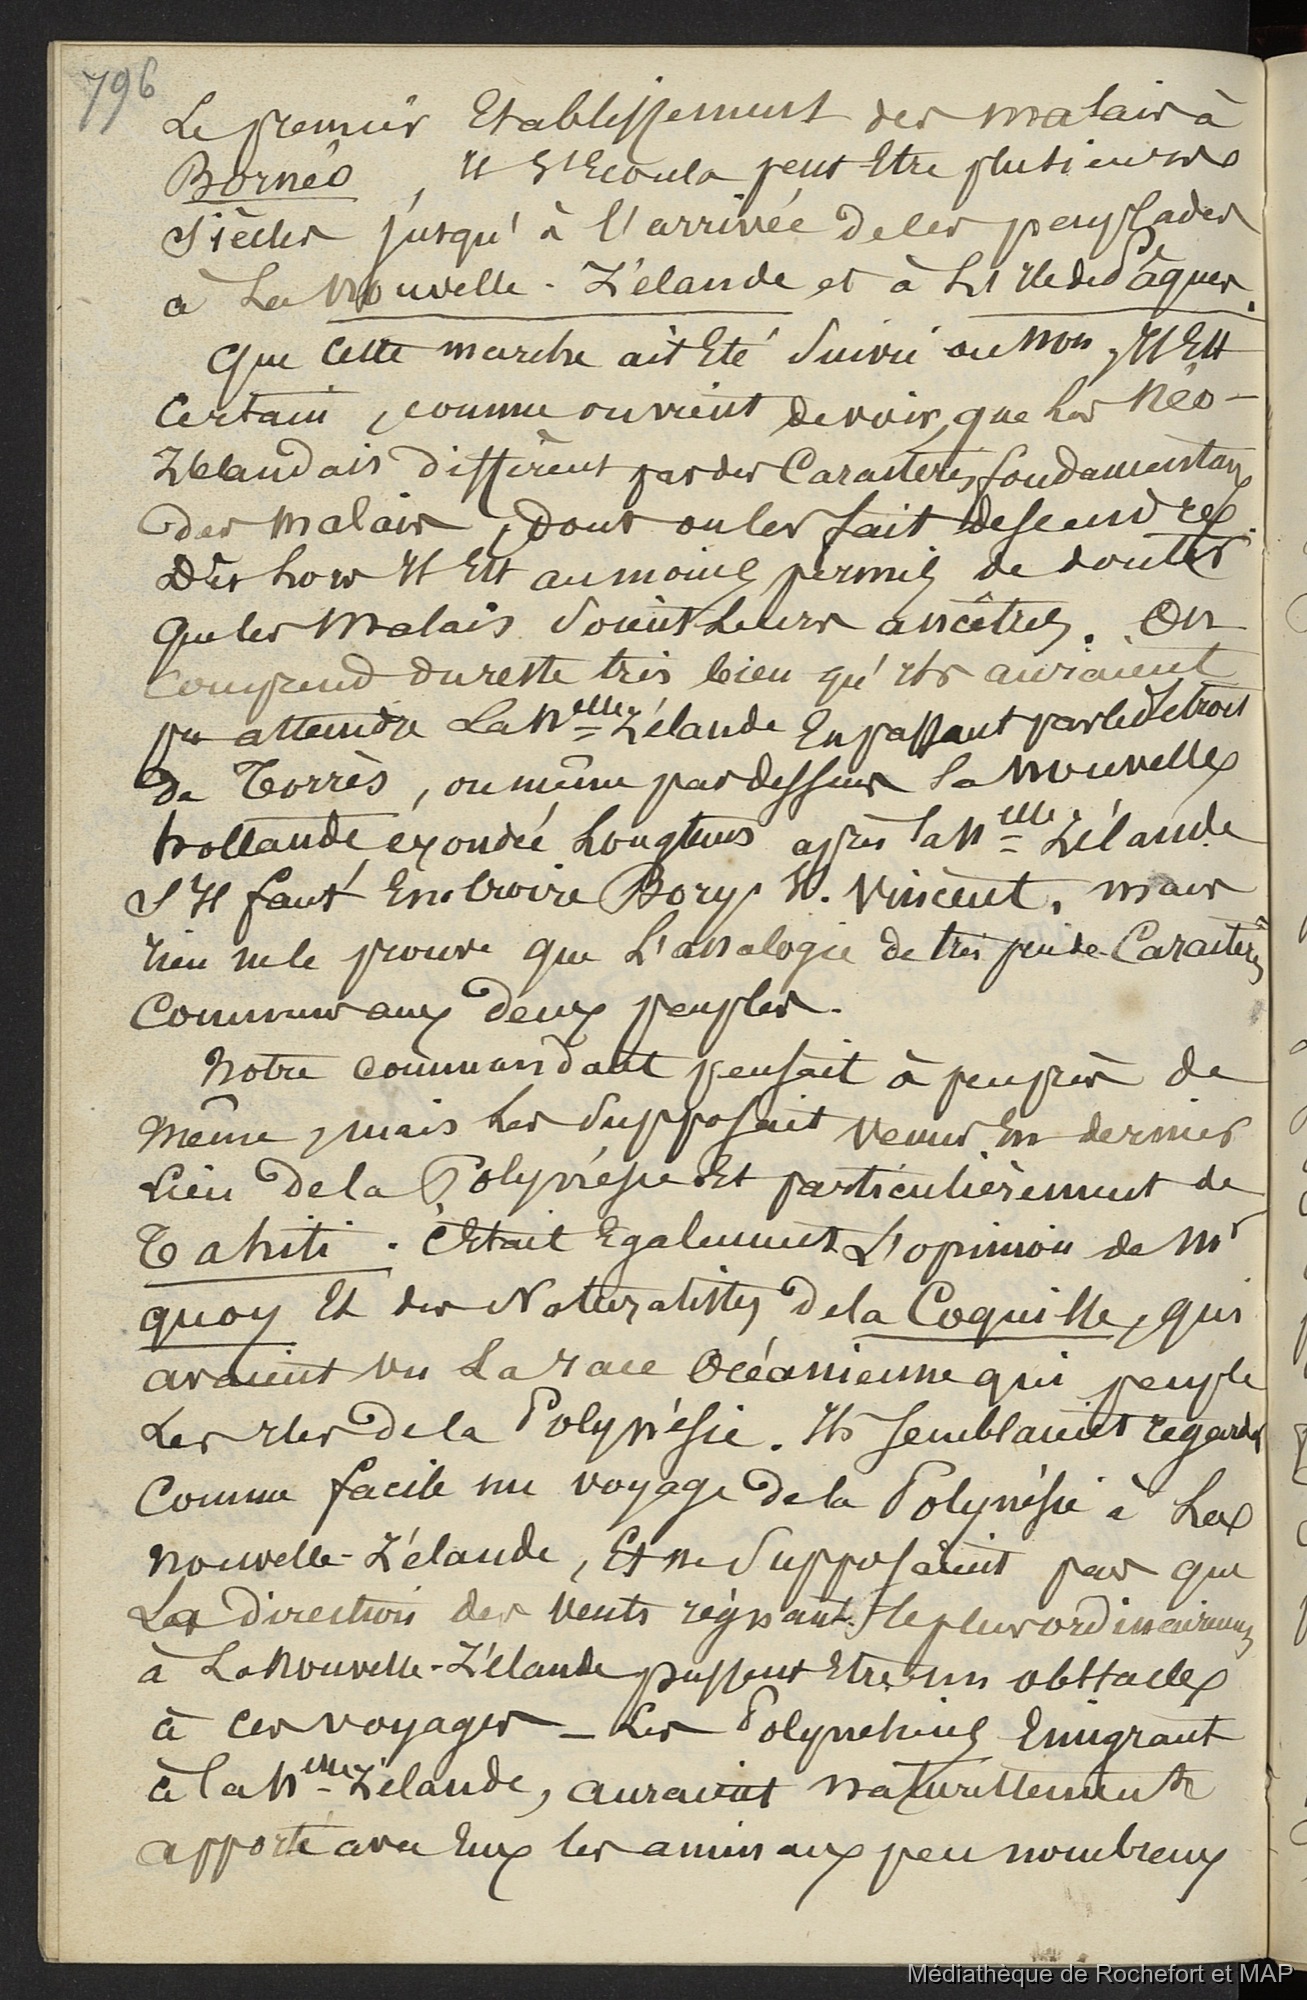 796
Le premier Etablissement des malais à
Bornéo, Il s'Ecoula peut Etre plusieurs
siècles jusqu'à l'arrivée de les peuplades
à La Nouvelle-Zélande et à L'Ile de Pâques.
Que cette marche ait Eté suivie ou non, Il Est
certain, comme on vient de voir, que Les Néo-
Zélandais diffèrent par des Caractères fondamentaux
des Malais, dont on les fait descendre.
Dès Lors Il Est au moins permis de douter
que les Malais soient Leurs ancêtres. On
comprend du reste très bien qu'ils auraient
pu atteindre La Nelle Zélande En passant par le Détroit
de Torrès, ou même par dessus la Nouvelle
hollande exondée Longtems après la Nelle Zélande
s'Il faut En croire Bory St. Vincent, mais
rien ne le prouve que L'analogie de très peu de Caractères
communs aux deux peuples.
Notre commandant pensait à peu près de
même, mais Les supposait venus En dernier
Lieu de la Polynésie Et particulièrement de
Tahiti. C'Etait Egalement L'opinion de Mr
quoy Et des Naturalistes de la Coquille, qui
avaient vu La race Océanienne qui peuple
Les Iles de la Polynésie. Ils semblaient regarder
comme facile un voyage de la Polynésie à La
Nouvelle-Zélande, Et ne supposaient pas que
La direction des vents régnant le plus ordinairement
à La Nouvelle-Zélande pussent Etre un obstacle
à ces voyages - Les Polynésiens Emigrant
à la Nelle Zélande, auraient naturellement
apporté avec Eux les animaux peu nombreux
Médiathèque de Rochefort et MAP